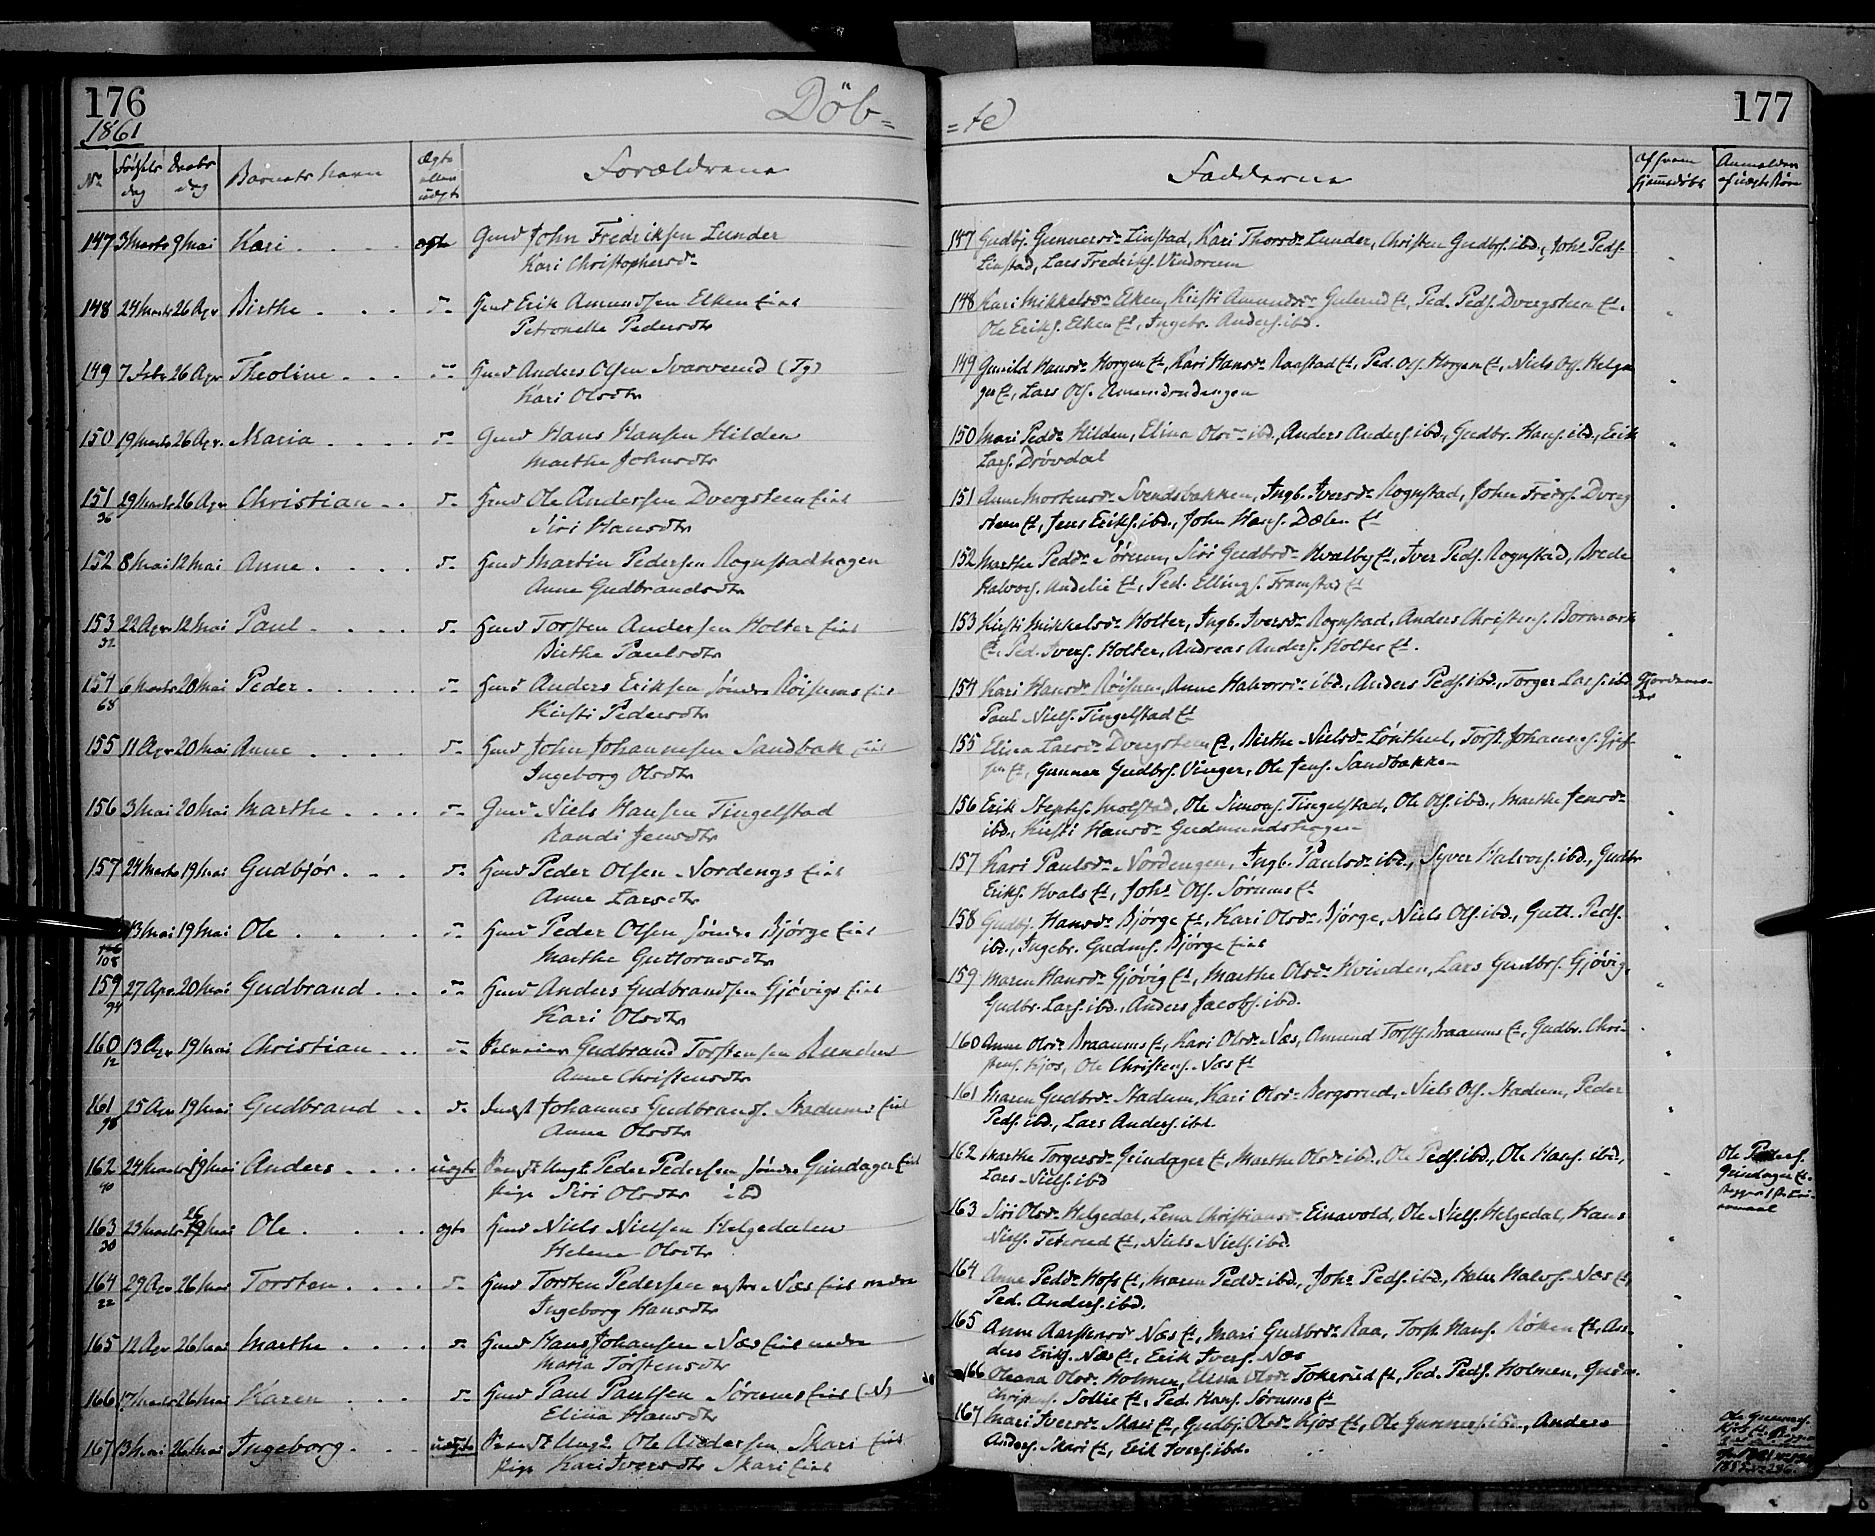 176
1861
Döb=
No
Fødsels dag
Daabs dag
Barnets Navn
Ægte eller uægte
Forældrene
147 3 Marts 9 Mai Kari ægte Gmd John Fredriksen Lunder
Kari Christophersdr
148 24 Marts 26 Apr Birthe Hmd Erik Amundsen Elken Eiet
Petronelle Pedersdtr
149 7 Febr 26 Apr Theoline Hmd Anders Olsen Svarverud (Tg)
Kari Olsdtr
150 19 Marts 26 Apr. Maria Gmd Hans Hansen Hilden
Marthe Johnsdtr
151 29 Marts 26 Apr Christian Hmd Ole Andersen Dvergsteen Eiet
36 Siri Hansdtr
152 8 Mai 12 Mai Anne Hmd Martin Pedersen Rognstadhagen
Anne Gudbrandsdtr
153 22 Apr 12 Mai Paul Hmd Torsten Andersen Holter Eiet
32 Birthe Paulsdtr
154 6 Marts 20 Mai Peder Hmd Anders Eriksen Søndre Røisums Eiet
68 Kirsti Pedersdtr
155 11 Apr 20 Mai Anne Hmd John Johannesen Sandbak Eiet
Ingeborg Olsdtr
156 3 Mai 20 Mai Marthe Gmd Niels Hansen Tingelstad
Randi Jensdtr
157 24 Marts 19 Mai Gudbjør Hmd Peder Olsen Nordengs Eiet
Anne Larsdtr
13 Mai 19 Mai Ole Hmd Peder Olsen Søndre Bjørge Eiet
108 Marthe Guttormsdtr
159 27 Apr 20 Mai Gudbrand Hmd Anders Gudbrandsen Gjøvigs Eiet
94 Kari Olsdtr
160 13 Apr 19 Mai Christian Gudbrand Torstensen
12 Anne Christensdtr
161 25 Apr 19 Mai Gudbrand Indst Johannes Gudbrands. Stadums Eiet
98 Anne Olsdtr
162 24 Marts 19 Mai Anders uægte Ungk. Peder Pedersen Søndre Grindager Eiet
40 Pige Siri Olsdtr ibd
163 23 Marts 26 Mai Ole ægte Hmd Niels Nielsen Helgedalen
30 Helene Olsdtr
164 29 Apr 26 Mai Torsten Hmd Torsten Pedersen Næs Eiet nedre
22 Ingeborg Hansdtr
165 12 Apr 26 Mai Marthe Hmd Hans Johansen Næs Eiet nedre
Maria Torstensdtr
166 17 Marts 26 Mai Karen Hmd Paul Paulsen Sørums Eiet
Elina Hansdtr
167 3 Mai 26 Mai Ingeborg uægte Ungk. Ole Andersen Skari Eiet
Pige Kari Iversdtr Skari Eiet
177
=te
Fadderne
Af hvem hjemmedøbt
Anmelder af uægte Børn
147 Gudbj. Gunnersdr Linstad, Kari Thorsdr Lunder, Christen Gudbs. ibd., Johs Peds.
Linstad, Lars Fredriks. Vindorum
148 Kari Mikkelsdr Elken, Kirsti Amundsdr Gulerud Et, Ped. Peds. Dvergsteen Et.
Ole Eriks. Elken Et, Ingebr. Anders. ibd.
149 Gunild Hansdr Horgen Et, Kari Hansdr Raastad Et, Ped. Ols. Horgen Et, Niels Ols. Helga
Et, Lars Ols.
150 Mari Pedsdr Hilden, Elina Olsdr ibd, Anders Anders. ibd., Gudbr. Hans. ibd., Erik
Lars. Drövdal
151 Anne Mortensdr Svendsbakken, Ingb. Iversdr Rognstad, John Fredrs. Dverg
steen Et, Jens Eriks. ibd., John Hans. Dælen Et
152 Marthe Pedsdr Sörum, Siri Gudbrdr Hvalby Et, Iver Peds. Rognstad, Brede
Halvors. Et, Ped. Ellings. Framstad Et
153 Kirsti Mikkelsdr Holter, Ingb. Iversdr Rognstad, Anders Christens. Bormark
Et, Ped. Ivers. Holter, Andreas Anders. Holter Et.
154 Kari Hansdr Røisum, Anne Halvorsdr ibd., Anders Peds. ibd., Torger Lars. ibd. Gjordemo-
Paul Niels. Tingelstad Et
155 Elina Larsdr Dvergsteen Et, Birthe Nielsdr, Torst. Johannes.
Et, Gunner Gudbrs. Vinger, Ole Jens. Sandbakken
156 Erik Stephs. Molstad, Ole Simons. Tingelstad, Ole Ols. ibd., Marthe Jensdr
ibd., Kirsti Hansdr Gudmundshagen
157 Kari Paulsdr Nordengen, Ingb. Paulsdr ibd., Syver Halvors. ibd., Gudbr
Eriks. Hvals Et, Johs Ols. Sørums Et
158 Gudbj. Hansdr Bjørge Et, Kari Olsdr Bjørge, Niels Ols. ibd., Gutt. Peds.
ibd., Ingebr. Gudms. Bjørge Eiet
159 Maren Hansdr Gjøvig Et, Marthe Olsdr Kvinden, Lars Gudbrs. Gjøvig,
Gudbr. Lars. ibd., Anders Jacobs. ibd.
160 Anne Olsdr Braaums Et, Kari Olsdr Næs, Amund Torsts. Braaums Et, Gudbr. Chri-
stens. Kjos, Ole Christens. Næs Et
161 Maren Gudbrdr Stadum, Kari Olsdr Bergsrud, Niels Ols. Stadum, Peder
Peds. ibd., Lars Anders. ibd.
162 Marthe Torgersdr Grindager Et, Marthe Olsdr ibd., Ole Peds. ibd., Ole Hans. ibd.,
Lars Niels. ibd
Ole Peders.
Grindager Et.
163 Siri Olsdr Helgedal, Lena Christiansdr Einavold, Ole Niels. Helgedal, Hans
Niels. Teterud Et, Niels Niels. ibd.
164 Anne Pedsdr Hofs Et, Maren Pedsdr ibd., Johs Peds. ibd., Halvs. Næs Et,
Ped. Anders. ibd.
165 Anne Næs Et, Mari Gudbrdr Raa, Torst. Hans. Røken Et, An-
ders Eriks. Næs Et, Erik Ivers. Næs
166 Oleana Olsdr Holmen, Elisa Olsdr Tokerud Et, Ped. Peds. Holmen, Gudm.
Sollie Et, Ped. Hans. Sørums Et
167 Mari Iversdr Skari Et, Gudbj. Olsdr Kjos Et, Ole Gunners. ibd., Anders
Anders. Skari Et, Erik Ivers. ibd.
Ole Gunners.
Kjos Et.